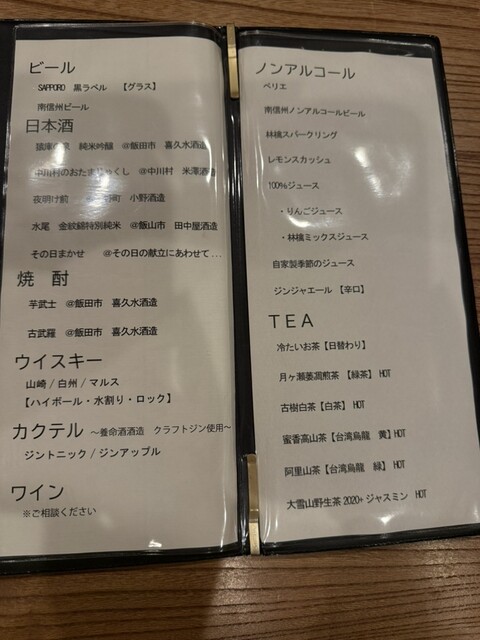 ビール
SAPPORO 黒ラベル 【グラス】
南信州ビール
日本酒
純米吟醸 @飯田市 喜久水酒造
中川村のおたまじゃくし @中川村 米澤酒造
夜明け前 町 小野酒造
水尾 金紋錦特別純米 @飯山市 田中屋酒造
その日まかせ @その日の献立にあわせて...
焼 酎
芋武士 @飯田市 喜久水酒造
古武羅 @飯田市 喜久水酒造
ウイスキー
山崎/白州/マルス
【ハイボール・水割り・ロック】
カクテル ～養命酒酒造 クラフトジン使用～
ジントニック/ジンアップル
ワイン
※ご相談ください
ノンアルコール
ペリエ
南信州ノンアルコールビール
林檎スパークリング
レモンスカッシュ
100%ジュース
・りんごジュース
・林檎ミックスジュース
自家製季節のジュース
ジンジャエール 【辛口】
TEA
冷たいお茶【日替わり】
月ヶ瀬萎凋煎茶 【緑茶】 HOT
古樹白茶【白茶】 HOT
蜜香高山茶【台湾烏龍 黄】HOT
阿里山茶【台湾烏龍 緑】 HOT
大雪山野生茶2020+ジャスミン HOT